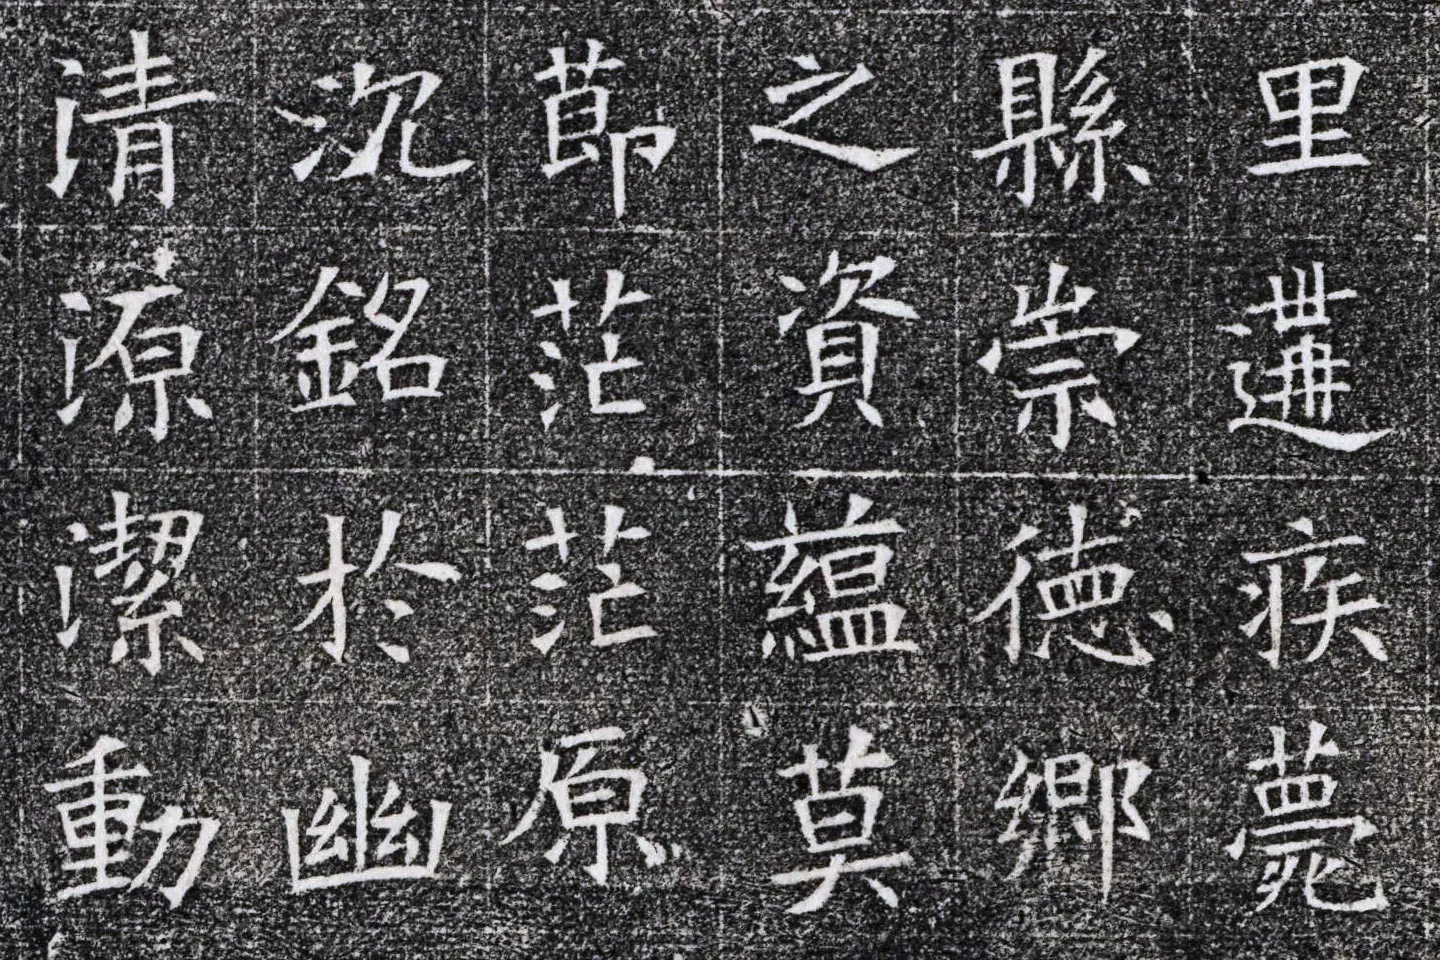 里遘疾薨
縣崇德鄉
之資蘊莫
莭茫茫原
沉銘於幽
清源潔動